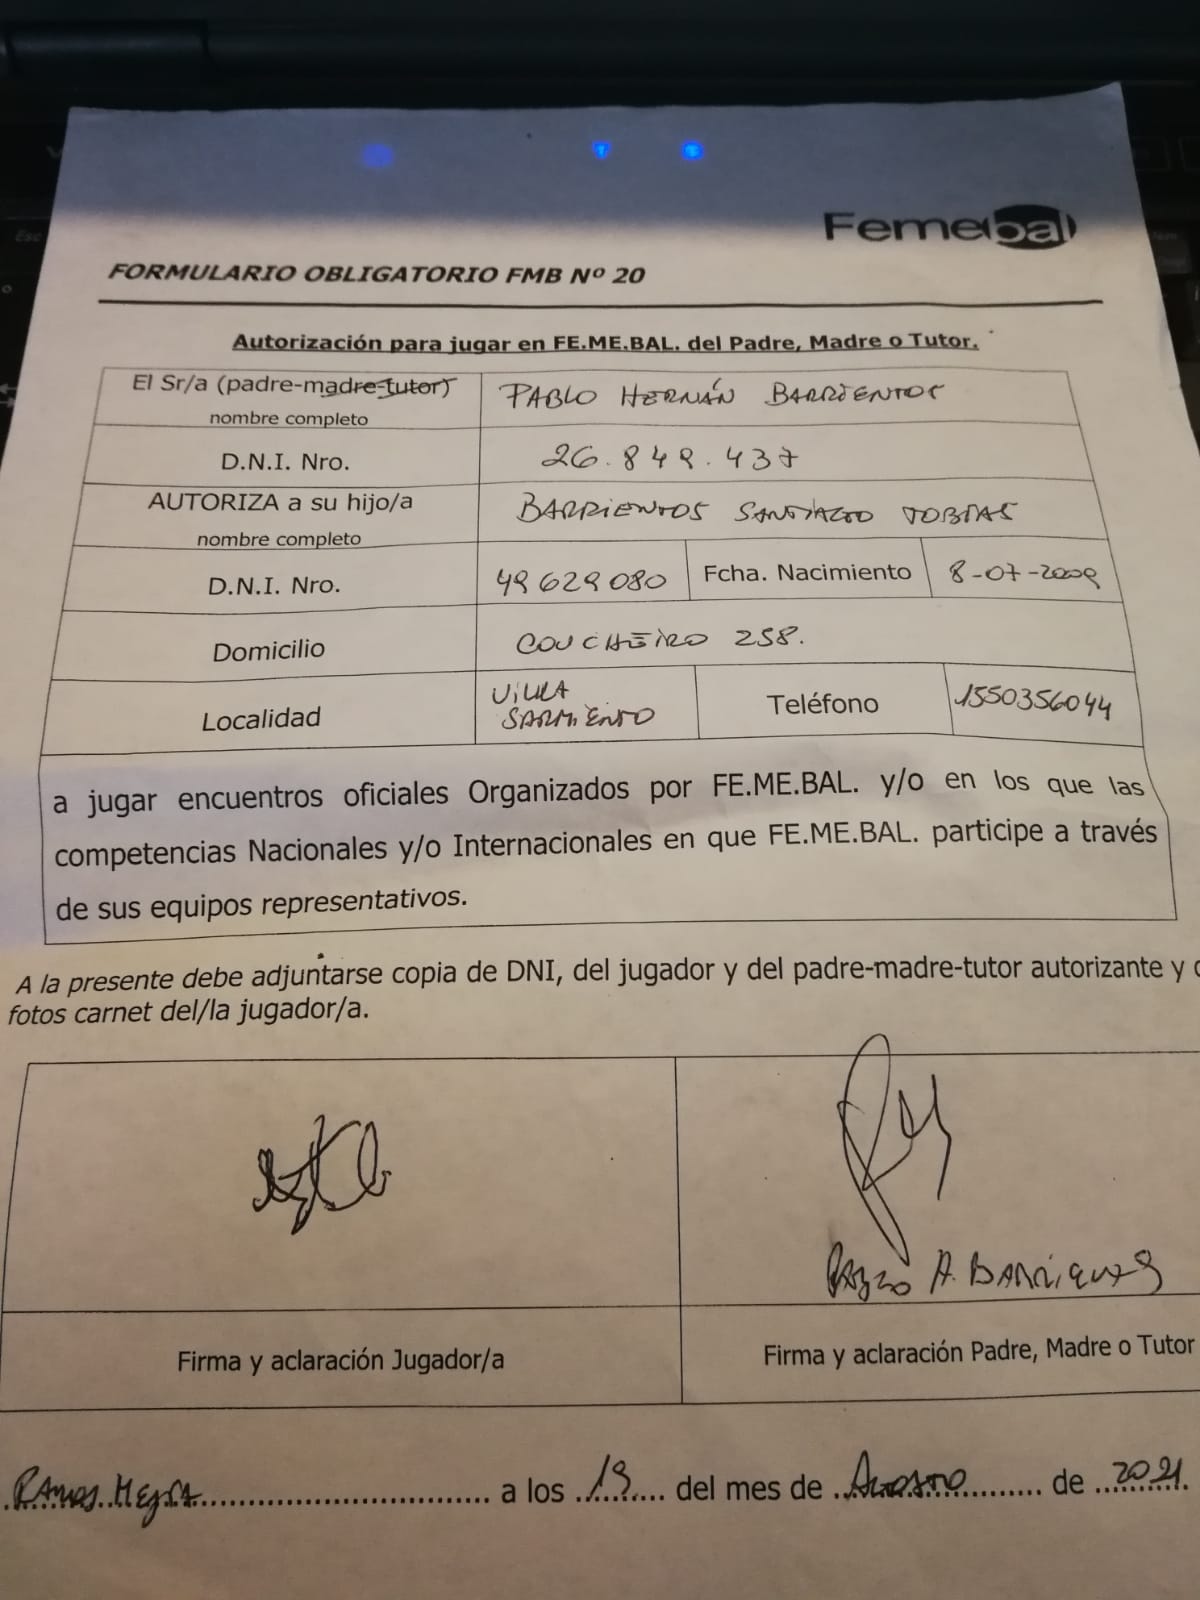 Femebal
FORMULARIO OBLIGATORIO FMB Nº 20
Autorización para jugar en FE.ME.BAL. del Padre, Madre o Tutor.
El Sr/a (padre-madre-tutor) PABLO HERNÁN BARRIENTOS
nombre completo
D.N.I. Nro. 26.849.437
AUTORIZA a su hijo/a BARRIENTOS SANTIAGO TOBIAS
nombre completo
D.N.I. Nro. 49629080 Fcha. Nacimiento 8-07-2009
Domicilio COUCHEIRO 258.
Localidad VILLA SARMIENTO Teléfono 1550356044
a jugar encuentros oficiales Organizados por FE.ME.BAL. y/o en los que las
competencias Nacionales y/o Internacionales en que FE.ME.BAL. participe a través
de sus equipos representativos.
A la presente debe adjuntarse copia de DNI, del jugador y del padre-madre-tutor autorizante y
fotos carnet del/la jugador/a.
Firma y aclaración Jugador/a
Firma y aclaración Padre, Madre o Tutor
RAMOS MEJIA a los 19 del mes de AGOSTO de 2021.